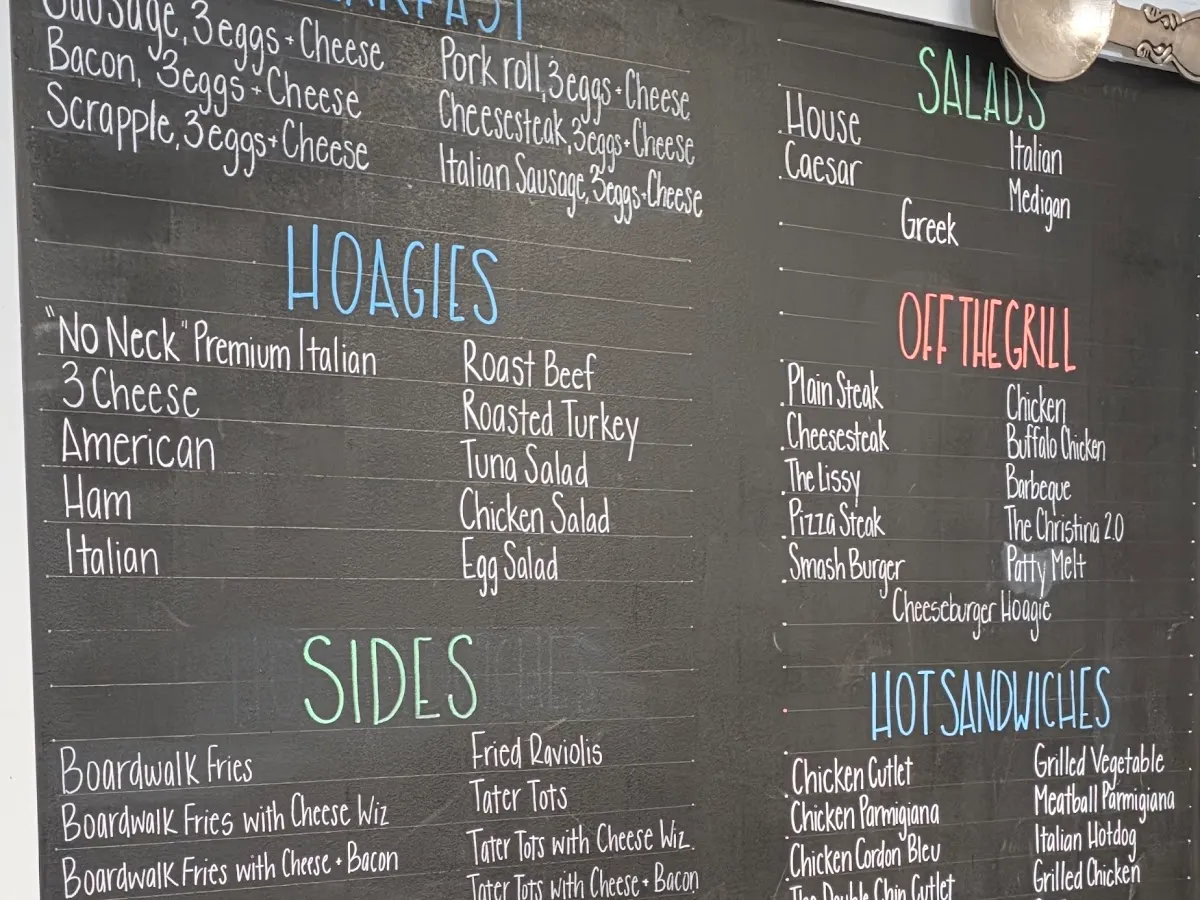 Sausage, 3 eggs + Cheese
Bacon, 3 eggs + Cheese
Scrapple, 3 eggs + Cheese
Pork roll, 3 eggs + Cheese
Cheesesteak, 3 eggs + Cheese
Italian Sausage, 3 eggs + Cheese
HOAGIES
"No Neck" Premium Italian
3 Cheese
American
Ham
Italian
Roast Beef
Roasted Turkey
Tuna Salad
Chicken Salad
Egg Salad
SIDES
Boardwalk Fries
Boardwalk Fries with Cheese Wiz
Boardwalk Fries with Cheese + Bacon
Fried Raviolis
Tater Tots
Tater Tots with Cheese Wiz.
Tater Tots with Cheese + Bacon
SALADS
House
Caesar
Italian
Medigan
Greek
OFF THE GRILL
Plain Steak
Cheesesteak
The Lissy
Pizza Steak
Smash Burger
Chicken
Buffalo Chicken
Barbeque
The Christina 2.0
Patty Melt
Cheeseburger Hoagie
HOT SANDWICHES
Chicken Cutlet
Chicken Parmigiana
Chicken Cordon Bleu
The Double Chin Cutlet
Grilled Vegetable
Meatball Parmigiana
Italian Hotdog
Grilled Chicken